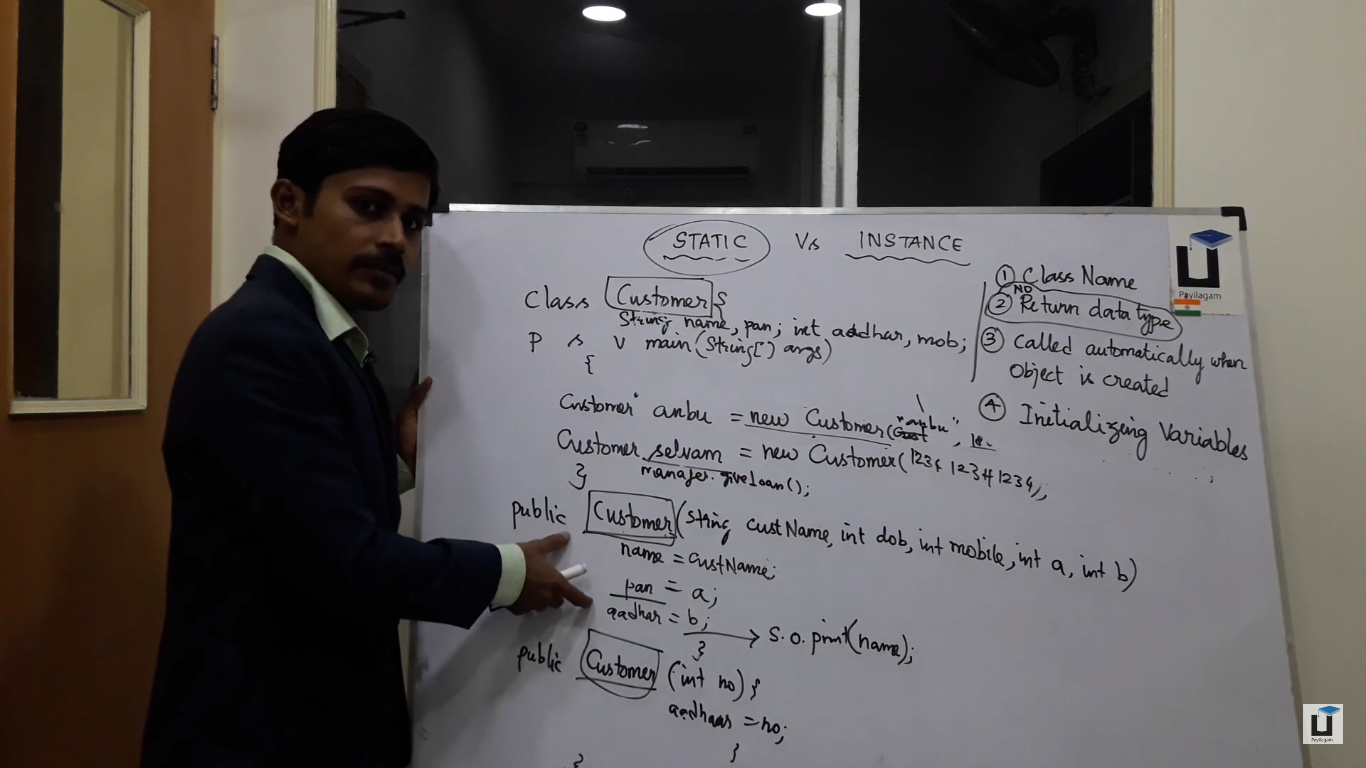 STATIC Vs INSTANCE
Class Customer {
String name, pan; int aadhar, mob;
P s v main(String[] args)
{
Customer anbu = new Customer("anbu",
Customer selvam = new Customer(1234 1234 1234);
manager.giveloan();
}
public Customer (String custName, int dob, int mobile, int a, int b)
name = custName;
pan = a;
aadhar = b;
} → S.o.print(name);
public Customer (int no) {
aadhaar = no;
}
}
① Class Name
② NO Return data type
③ Called automatically when
Object is created
④ Initializing Variables
Payilagam
Payilagam